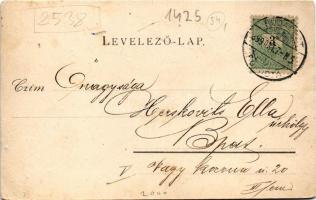 2538
1425
54
LEVELEZŐ-LAP.
Czím Őnagysága
Herskovits Ella
úrhölgy
Bpest
V Nagy korona u. 20
I. em.
2000